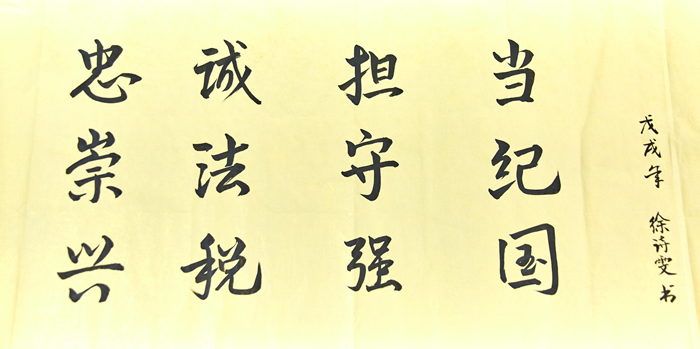 忠诚担当
崇法守纪
兴税强国
戊戌年 徐诗雯 书